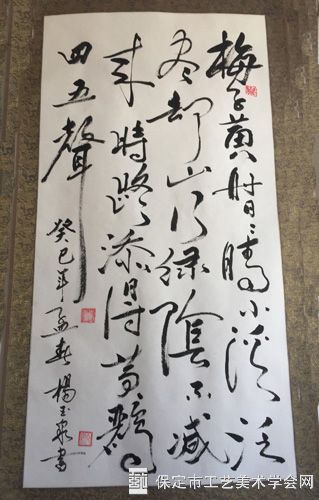 梅子黄时日日晴小溪泛
尽却山行绿陰不减
来时路添得黄鹂
四五聲
癸巳年孟春楊玉泉书
保定市工艺美术学会网